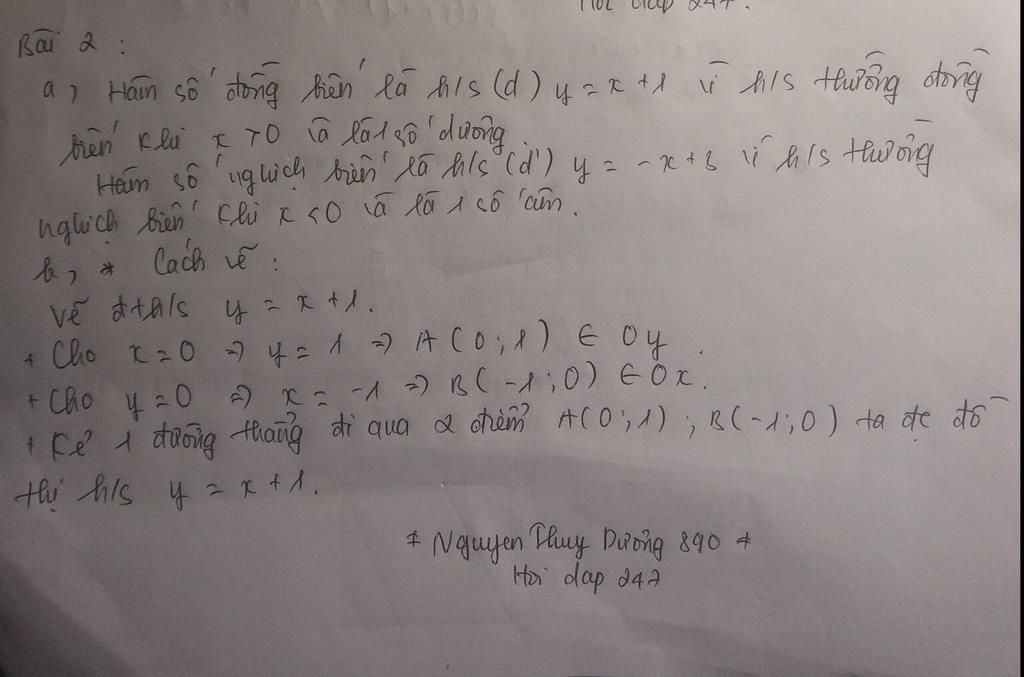 Hỏi đáp 247.
Bài 2 :
a, Hàm số đồng biến là h/s (d) y = x + 1 vì h/s thường đồng
biến khi x > 0 và là 1 số dương.
Hàm số nghịch biến là h/s (d') y = -x + 3 vì h/s thường
nghịch biến khi x < 0 và là 1 số âm.
b, * Cách vẽ :
Vẽ đths y = x + 1.
+ Cho x = 0 => y = 1 => A ( 0 ; 1 ) ∈ Oy .
+ Cho y = 0 => x = -1 => B ( -1 ; 0 ) ∈ Ox.
+ Kẻ 1 đường thẳng đi qua 2 điểm A ( 0 ; 1 ) ; B ( -1 ; 0 ) ta đc đồ
thị h/s y = x + 1.
* Nguyen Thuy Dương 890 *
Hoi dap 247